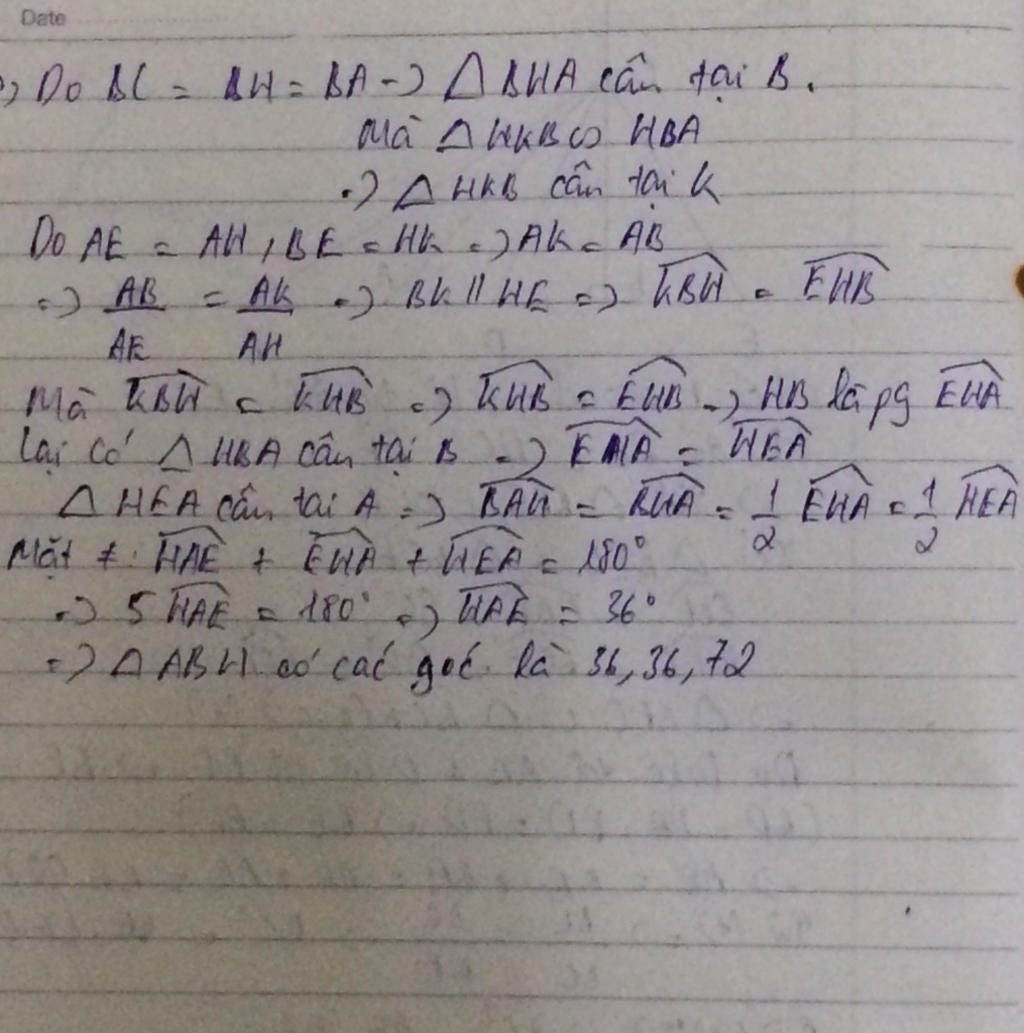 Date
=) Do BC = BH = BA =) △BHA cân tại B.
Mà △HKB ∽ HBA
=) △HKB cân tại K
Do AE = AH, BE = HK =) AK = AB
=) AB/AE = AK/AH =) BK // HE =) \widehat{KBH} = \widehat{EHB}
Mà \widehat{KBH} = \widehat{KHB} =) \widehat{KHB} = \widehat{EHB} =) HB là pg \widehat{EHA}
Lại có △HBA cân tại B =) \widehat{EHA} = \widehat{HEA}
△HEA cân tại A =) \widehat{BAH} = \widehat{BHA} = 1/2 \widehat{EHA} = 1/2 \widehat{HEA}
Mặt ≠: \widehat{HAE} + \widehat{EHA} + \widehat{HEA} = 180°
=) 5\widehat{HAE} = 180° =) \widehat{HAE} = 36°
=) △ABH có các góc là 36, 36, 72